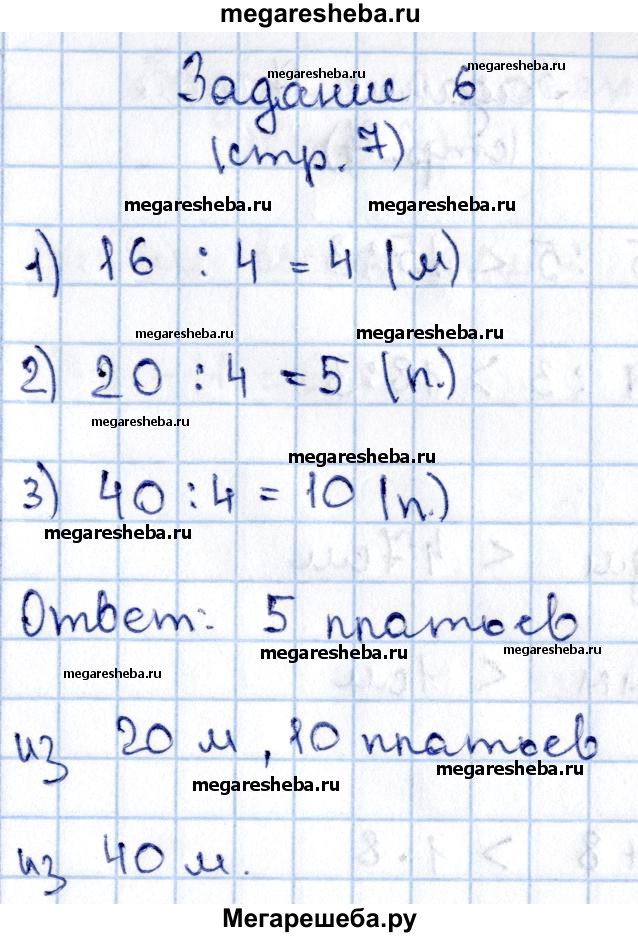 megaresheba.ru
Задание 6
megaresheba.ru megaresheba.ru
(стр. 7)
megaresheba.ru megaresheba.ru
1) 16 : 4 = 4 (м)
megaresheba.ru megaresheba.ru
2) 20 : 4 = 5 (п.)
megaresheba.ru
megaresheba.ru
3) 40 : 4 = 10 (п.)
megaresheba.ru
Ответ: 5 платьев
megaresheba.ru megaresheba.ru
megaresheba.ru
из 20 м, 10 платьев
megaresheba.ru megaresheba.ru
из 40 м.
Мегарешеба.ру